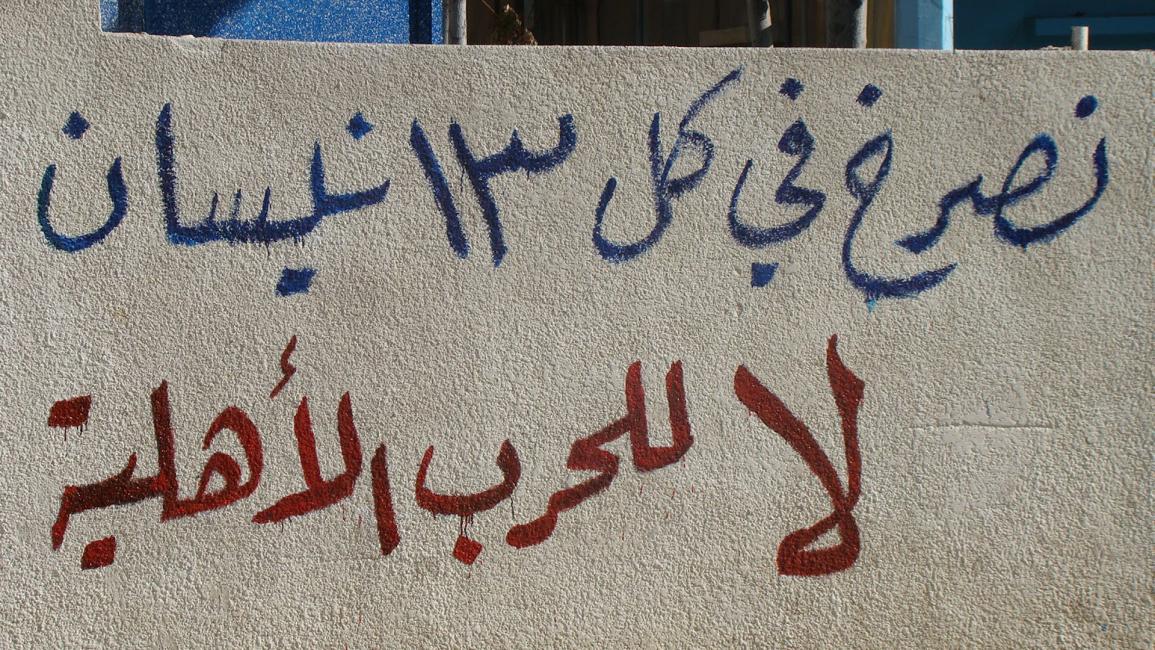 نصرخ في كل ١٣ نيسان
لا للحرب الأهلية